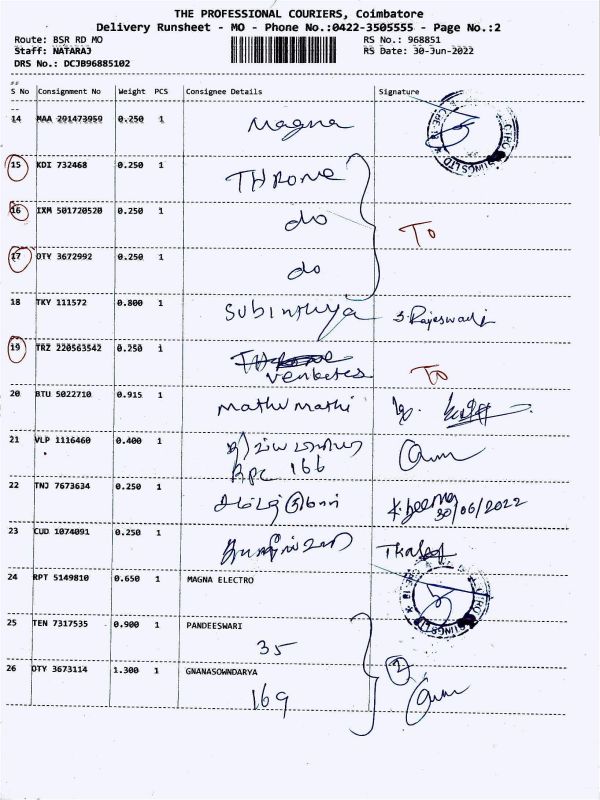 THE PROFESSIONAL COURIERS, Coimbatore
Delivery Runsheet - MO - Phone No.:0422-3505555 - Page No.:2
Route: BSR RD MO RS No.: 968851
Staff: NATARAJ RS Date: 30-Jun-2022
DRS No.: DCJB96885102
##
S No Consignment No Weight PCS Consignee Details Signature
--
14 MAA 291473959 0.250 1 Magna
15 KDI 732468 0.250 1 THRONE
16 IXM 501720520 0.250 1 do
To
17 OTY 3672992 0.250 1 do
18 TKY 111572 0.800 1 Subinthya S. Rajeswari
19 TRZ 220563542 0.250 1 THRONE
venketes To
20 BTU 5022710 0.915 1 Mathi Mathi
21 VLP 1116460 0.400 1
Rpc 166
22 TNJ 7673634 0.250 1
30/06/2022
23 CUD 1074091 0.250 1
24 RPT 5149810 0.650 1 MAGNA ELECTRO
25 TEN 7317535 0.900 1 PANDEESWARI
35
26 OTY 3673114 1.300 1 GNANASOWNDARYA 2
169